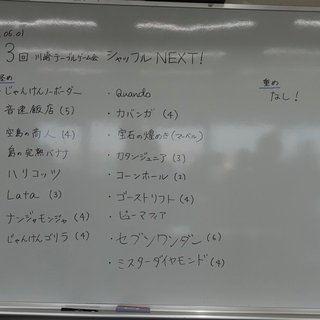 05.01
3回 川崎テーブルゲーム会 シャッフルNEXT!
じゃんけんノーボーダー
音速飯店(5)
空島の商人(4)
島の完熟バナナ
ハリコッツ
Lata (3)
ナンジャモンジャ(4)
じゃんけんゴリラ(4)
・Quando
・カバンガ(4)
・宝石の煌めき(マーベル)
・カタンジュニア(3)
・コーンホール(2)
・ゴーストリフト(4)
・ピューマフィア
・セブンワンダー(6)
・ミスターダイヤモンド(4)
重め
なし!